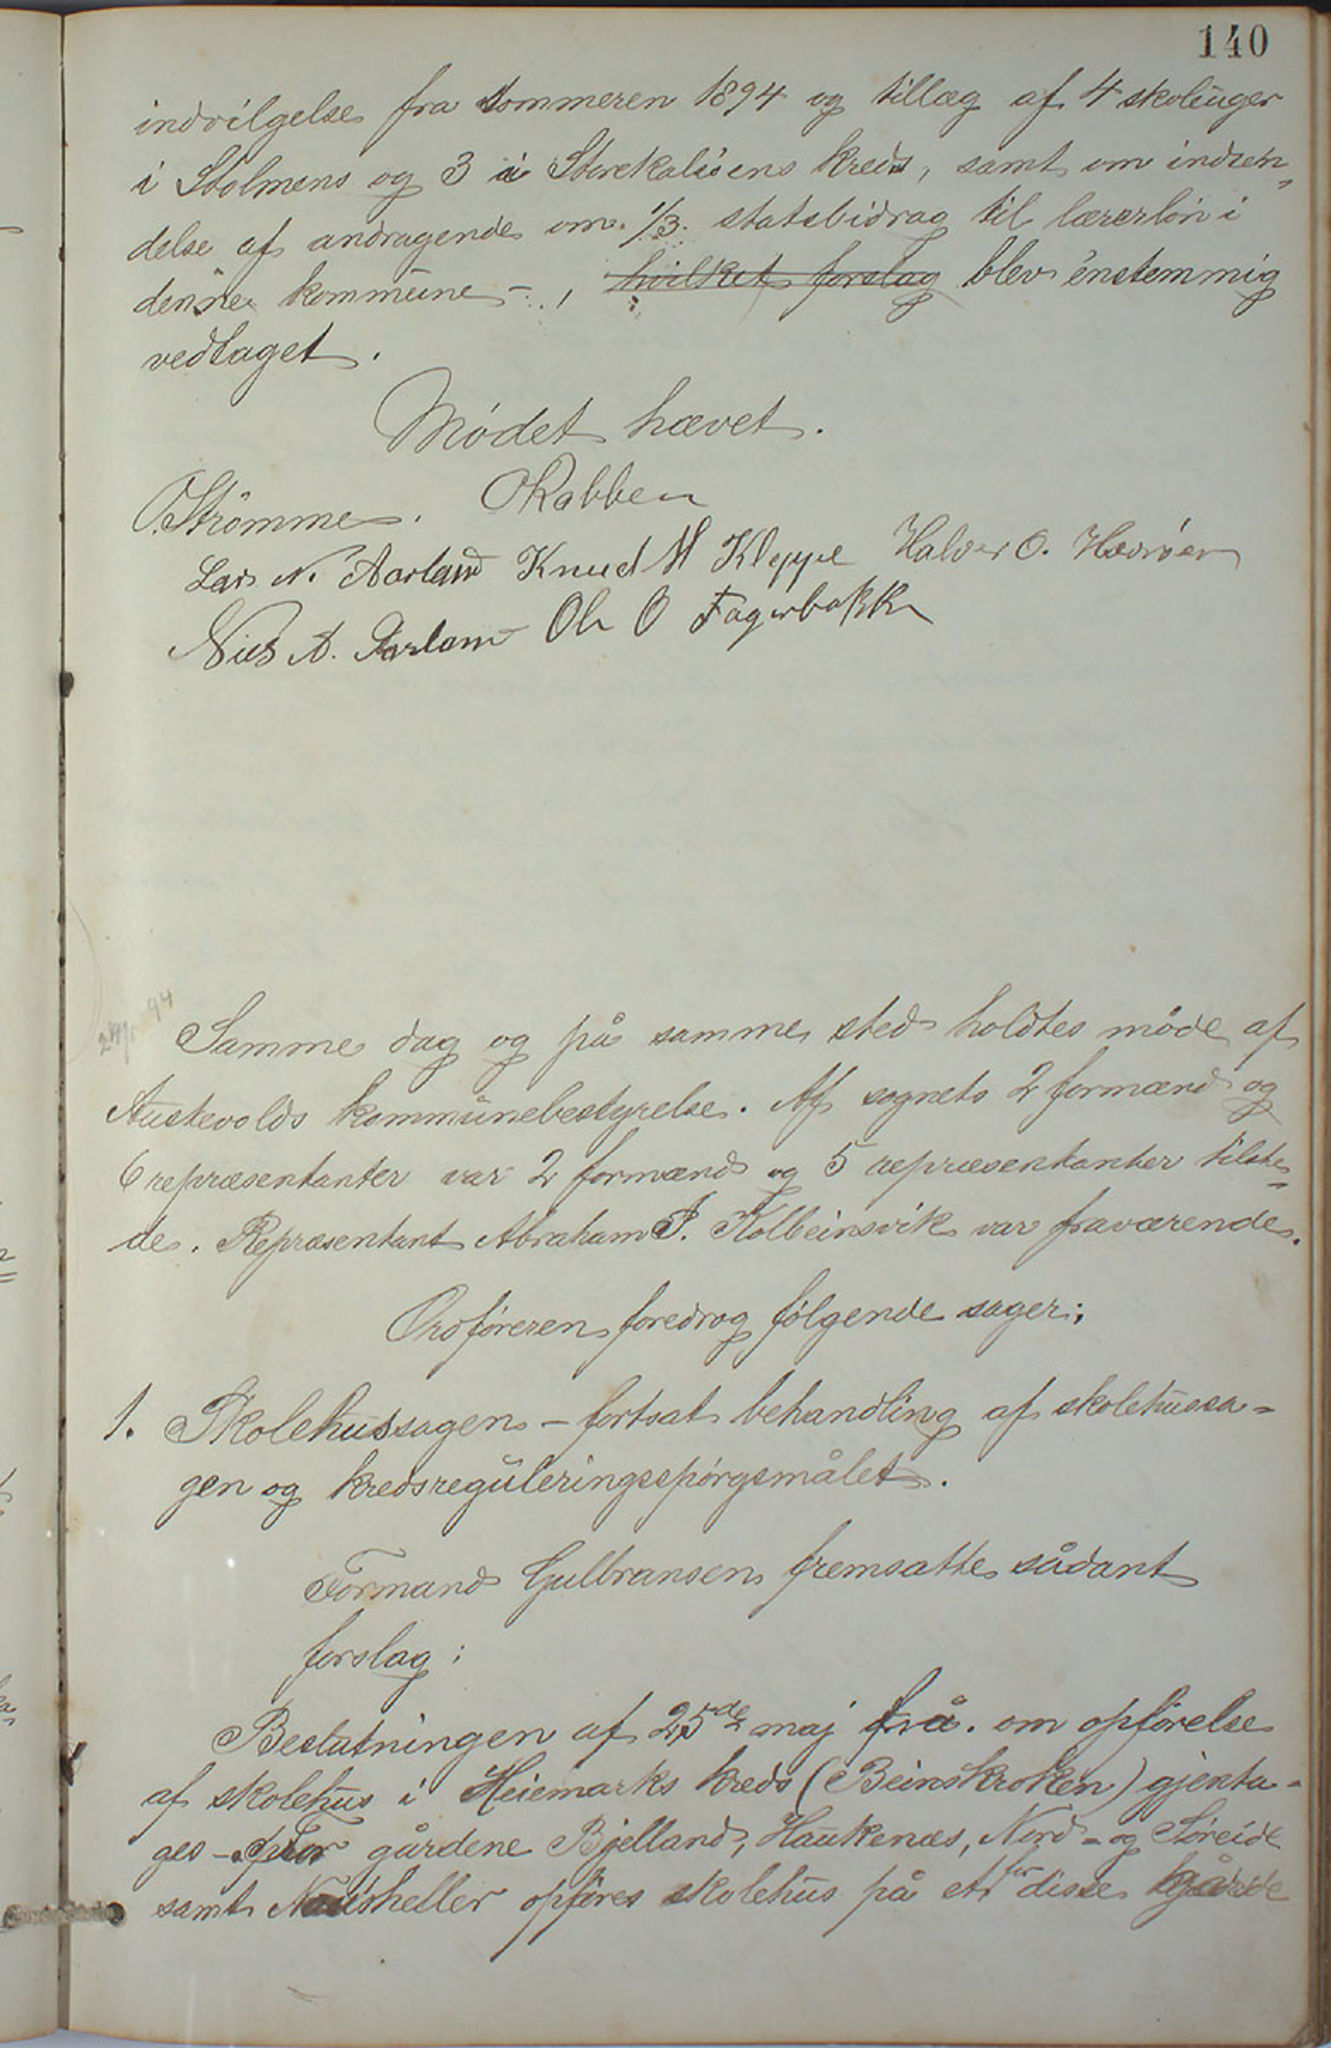 140
indvilgelse fra sommeren 1894 og tillæg af 4 skoleuger
i Stolmens og 3 i Storekalsöens kreds, samt om indsen-
delse af andragende om 1/3 statsbidrag til lærerlön i
denne kommune -, hvilket forslag blev énstemmig
vedtaget.
Mödet hævet.
O. Strömme. O Rabben
Lars N. Aarland Knud H Kleppe Halvor O. Hevröen
Nils A. Aarland Ole O Fagerbakke
24/1 94
Samme dag og på samme sted holdtes möde af
Austevolds kommunebestyrelse. Af sognets 2 formænd og
6 repræsentanter var 2 formænd og 5 repræsentanter tilste-
de. Repræsentant Abraham P. Kolbeinsvik var fraværende.
Ordföreren foredrog fölgende sager:
1. Skolehussagen - fortsat behandling af skolehussa-
gen og kredsreguleringsspörgsmålet.
Formand Gulbransen fremsatte sådant
forslag:
Beslutningen af 25de maj f. å. om opförelse
af skolehus i Heiemarks kreds (Beinskroken) gjenta-
ges - For gårdene Bjelland, Haukenæs, Nord- og Söreide
samt Nausheller opföres skolehus på et for disse gårde